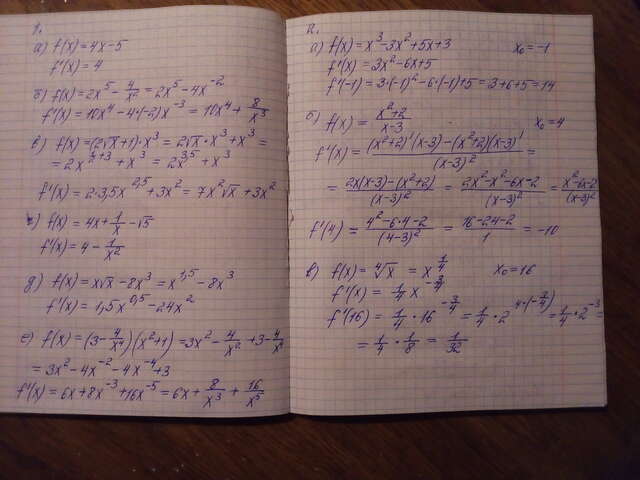 1.
а) f(x) = 4x - 5
f'(x) = 4
б) f(x) = 2x^5 - 4/x^2 = 2x^5 - 4x^-2
f'(x) = 10x^4 - 4·(-2)x^-3 = 10x^4 + 8/x^3
в) f(x) = (2√x + 1)·x^3 = 2√x·x^3 + x^3 =
= 2x^(1/2+3) + x^3 = 2x^3,5 + x^3
f'(x) = 2·3,5x^2,5 + 3x^2 = 7x^2√x + 3x^2
г) f(x) = 4x + 1/x - √5
f'(x) = 4 - 1/x^2
д) f(x) = x√x - 8x^3 = x^1,5 - 8x^3
f'(x) = 1,5x^0,5 - 24x^2
е) f(x) = (3 - 4/x^4)(x^2+1) = 3x^2 - 4/x^2 + 3 - 4/x^4
= 3x^2 - 4x^-2 - 4x^-4 + 3
f'(x) = 6x + 8x^-3 + 16x^-5 = 6x + 8/x^3 + 16/x^5
2.
а) f(x) = x^3 - 3x^2 + 5x + 3 x₀ = -1
f'(x) = 3x^2 - 6x + 5
f'(-1) = 3·(-1)^2 - 6·(-1) + 5 = 3 + 6 + 5 = 14
б) f(x) = (x^2+2)/(x-3) x₀ = 4
f'(x) = ((x^2+2)'(x-3) - (x^2+2)(x-3)')/(x-3)^2 =
= (2x(x-3) - (x^2+2))/(x-3)^2 = (2x^2 - x^2 - 6x - 2)/(x-3)^2 = (x^2 - 6x - 2)/(x-3)^2
f'(4) = (4^2 - 6·4 - 2)/(4-3)^2 = (16 - 24 - 2)/1 = -10
в) f(x) = ⁴√x = x^(1/4) x₀ = 16
f'(x) = 1/4 x^(-3/4)
f'(16) = 1/4 · 16^(-3/4) = 1/4 · 2^(4·(-3/4)) = 1/4 · 2^-3 =
= 1/4 · 1/8 = 1/32